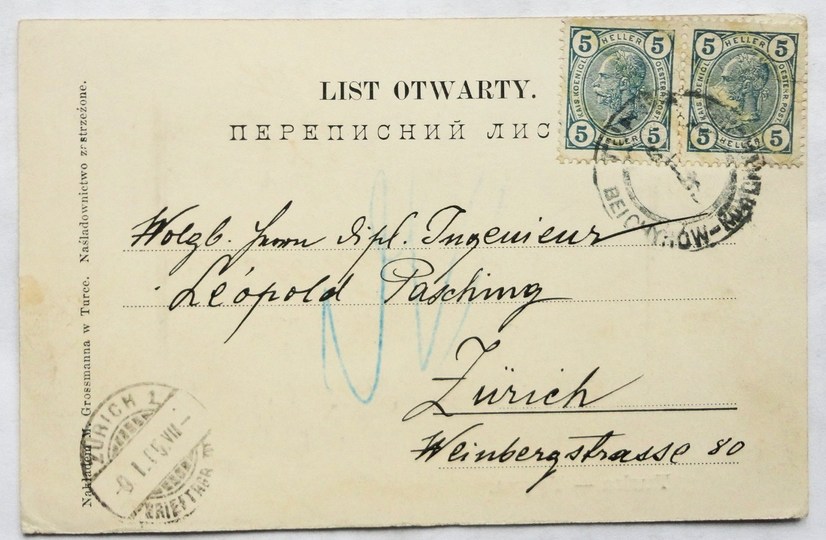 LIST OTWARTY.
ПЕРЕПИСНИЙ ЛИС
5 HELLER 5
KAIS. KOENIGL. OESTERR. POST
5 HELLER 5
5 HELLER 5
KAIS. KOENIGL. OESTERR. POST
5 HELLER 5
Wolgb. Herrn dipl. Ingenieur
Léopold Pasching
Zürich
Weinbergstrasse 80
Nakładem M. Grossmanna w Turce. Naśladownictwo zastrzeżone.
ZÜRICH 1
BRIEFTRÄGER